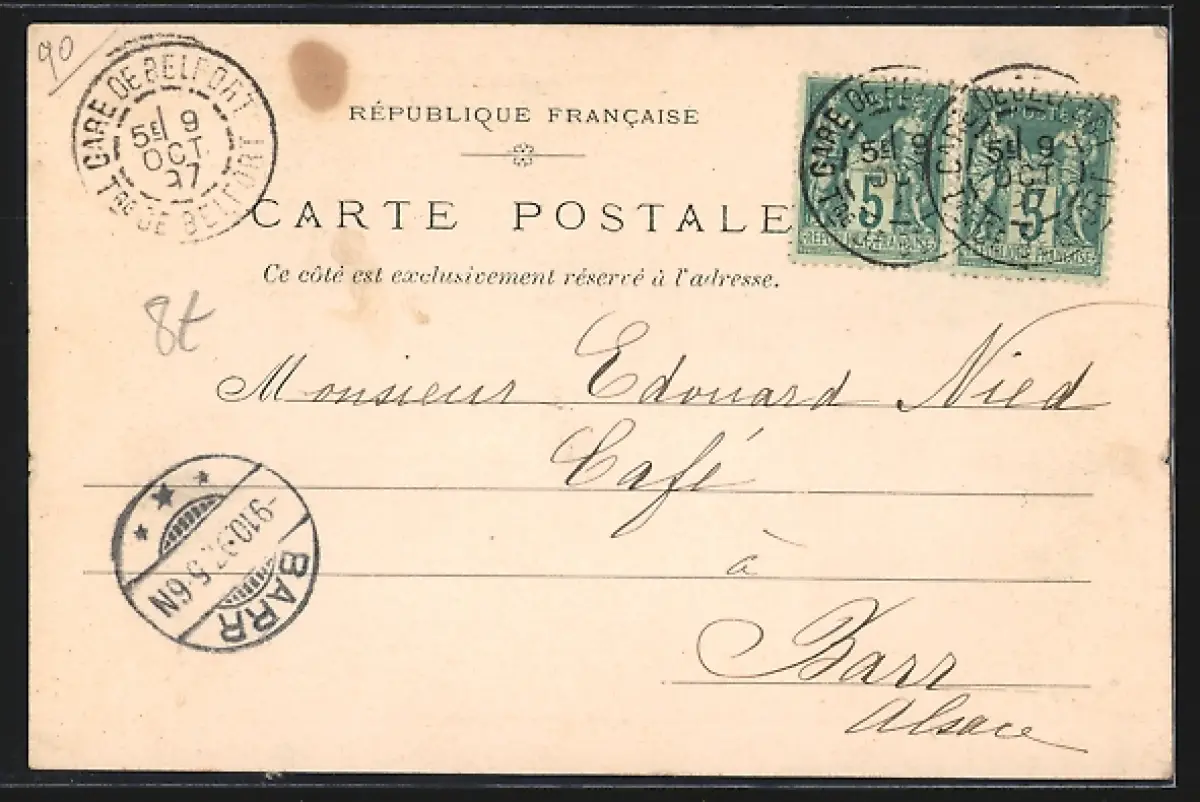 90
GARE DE BELFORT
5E 9
OCT
97
TRE DE BELFORT
RÉPUBLIQUE FRANÇAISE
CARTE POSTALE
Ce côté est exclusivement réservé à l'adresse.
GARE DE BELFORT
5E 9
OCT
5
RÉPUBLIQUE FRANÇAISE
POSTES
5E 9
OCT
5
RÉPUBLIQUE FRANÇAISE
8t
Monsieur Edouard Nied
Café
à
Barr
Alsace
-9.10.97. 5-6N
BARR